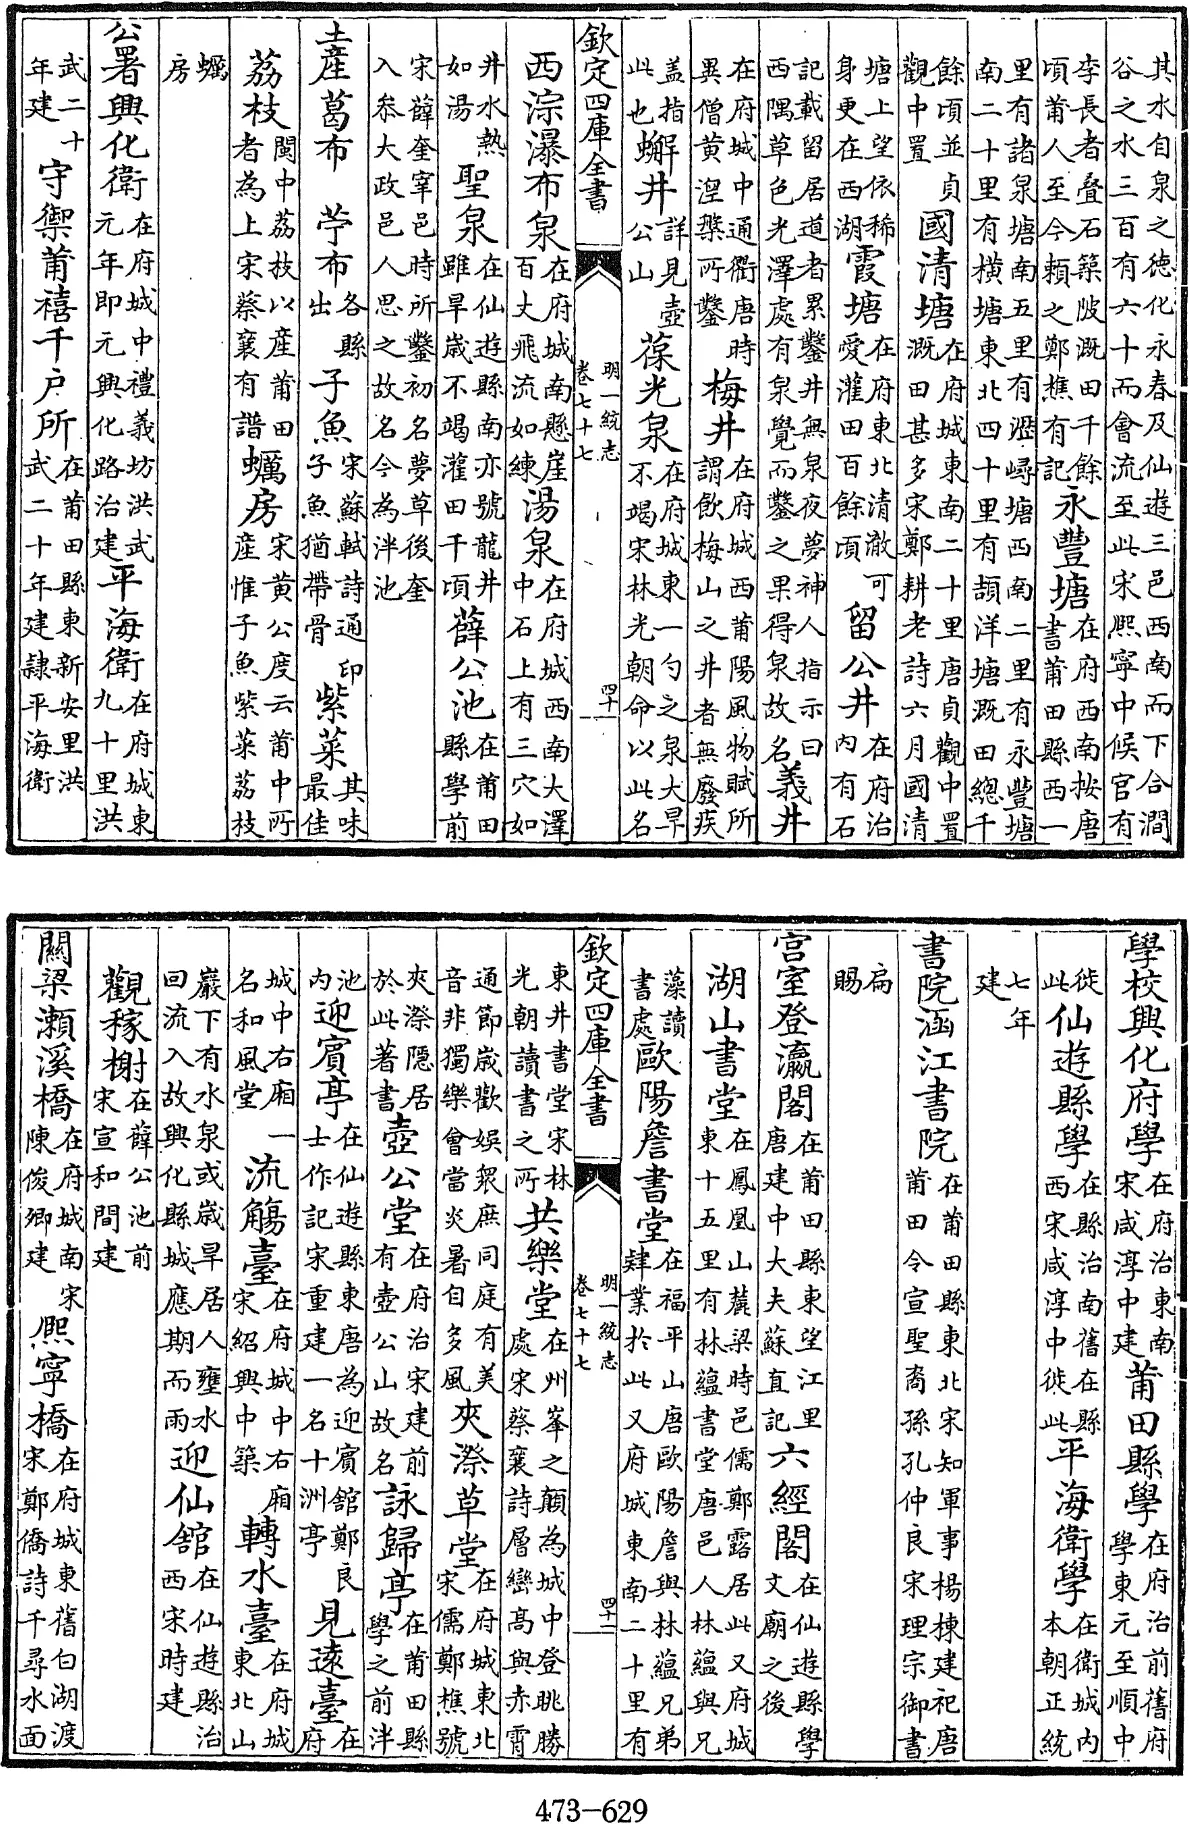 其水自泉之德化永春及仙遊三邑西南而下合澗
谷之水三百有六十而會流至此宋熈寧中候官有
李長者叠石築陂溉田千餘
頃莆人至今頼之鄭樵有記
永豐塘
在府西南按唐
書莆田縣西一
里有諸泉塘南五里有瀝㟳塘西南二里有永豐塘
南二十里有橫塘東北四十里有頡洋塘溉田總千
餘頃並貞
觀中置
國清塘
在府城東南二十里唐貞觀中置
溉田甚多宋鄭耕老詩六月國清
塘上望依稀
身更在西湖
霞塘
在府東北清澈可
愛灌田百餘頃
留公井
在府治
内有石
記載留居道者累鑿井無泉夜夢神人指示曰
西隅草色光澤處有泉覺而鑿之果得泉故名
義井
在府城中通衢唐時
異僧黄涅槃所鑿
梅井
在府城西莆陽風物賦所
謂飲梅山之井者無廢疾
蓋指
此也
蠏井
詳見壺
公山
葆光泉
在府城東一勺之泉大旱
不竭宋林光朝命以此名
欽定四庫全書
明一統志
卷七十七
四十一
西淙瀑布泉
在府城南懸崖
百丈飛流如練
湯泉
在府城西南大澤
中石上有三穴如
井水熱
如湯
聖泉
在仙遊縣南亦號龍井
雖旱歲不竭灌田千頃
薛公池
在莆田
縣學前
宋薛奎宰邑時所鑿初名夢草後奎
入叅大政邑人思之故名今為泮池
土産葛布 苧布
各縣
出
子魚
宋蘇軾詩通印
子魚猶帶骨
紫菜
其味
最佳
荔枝
閩中荔枝以産莆田
者為上宋蔡襄有譜
蠣房
宋黄公度云莆中所
産惟子魚紫菜荔枝
蠣
房
公署興化衛
在府城中禮義坊洪武
元年即元興化路治建
平海衛
在府城東
九十里洪
武二十
年建
守禦莆禧千户所
在莆田縣東新安里洪
武二十年建隷平海衛
學校興化府學
在府治東南
宋咸淳中建
莆田縣學
在府治前舊府
學東元至順中
徙
此
仙遊縣學
在縣治南舊在縣
西宋咸淳中徙此
平海衛學
在衛城内
本朝正統
七年
建
書院涵江書院
在莆田縣東北宋知軍事楊棟建祀唐
莆田令宣聖裔孫孔仲良宋理宗御書
扁
賜
宫室登瀛閣
在莆田縣東望江里
唐建中大夫蘇直記
六經閣
在仙遊縣學
文廟之後
湖山書堂
在鳳凰山麓梁時邑儒鄭露居此又府城
東十五里有林蘊書堂唐邑人林蘊與兄
藻讀
書處
歐陽詹書堂
在福平山唐歐陽詹與林蘊兄弟
肄業於此又府城東南二十里有
欽定四庫全書
明一統志
卷七十七
四十二
東井書堂宋林
光朝讀書之所
共樂堂
在州峯之巔為城中登眺勝
處宋蔡襄詩層巒髙與赤霄
通節歲歡娱衆庶同庭有美
音非獨樂會當炎暑自多風
夾漈草堂
在府城東北
宋儒鄭樵號
夾漈隠居
於此著書
壺公堂
在府治宋建前
有壺公山故名
詠歸亭
在莆田縣
學之前泮
池
内
迎賓亭
在仙遊縣東唐為迎賓舘鄭良
士作記宋重建一名十洲亭
見遠臺
在
府
城中右廂一
名和風堂
流觴臺
在府城中右廂
宋紹興中築
轉水臺
在府城
東北山
巖下有水泉或歲旱居人壅水
回流入故興化縣城應期而雨
迎仙舘
在仙遊縣治
西宋時建
觀稼榭
在薛公池前
宋宣和間建
關梁瀨溪橋
在府城南宋
陳俊卿建
熈寧橋
在府城東舊白湖渡
宋鄭僑詩千尋水面
473-629